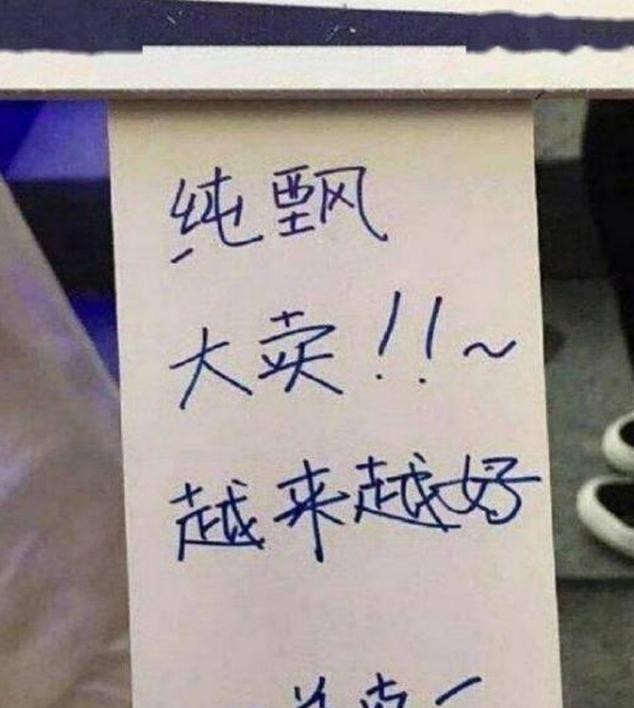 纯飘
大卖!!~
越来越好